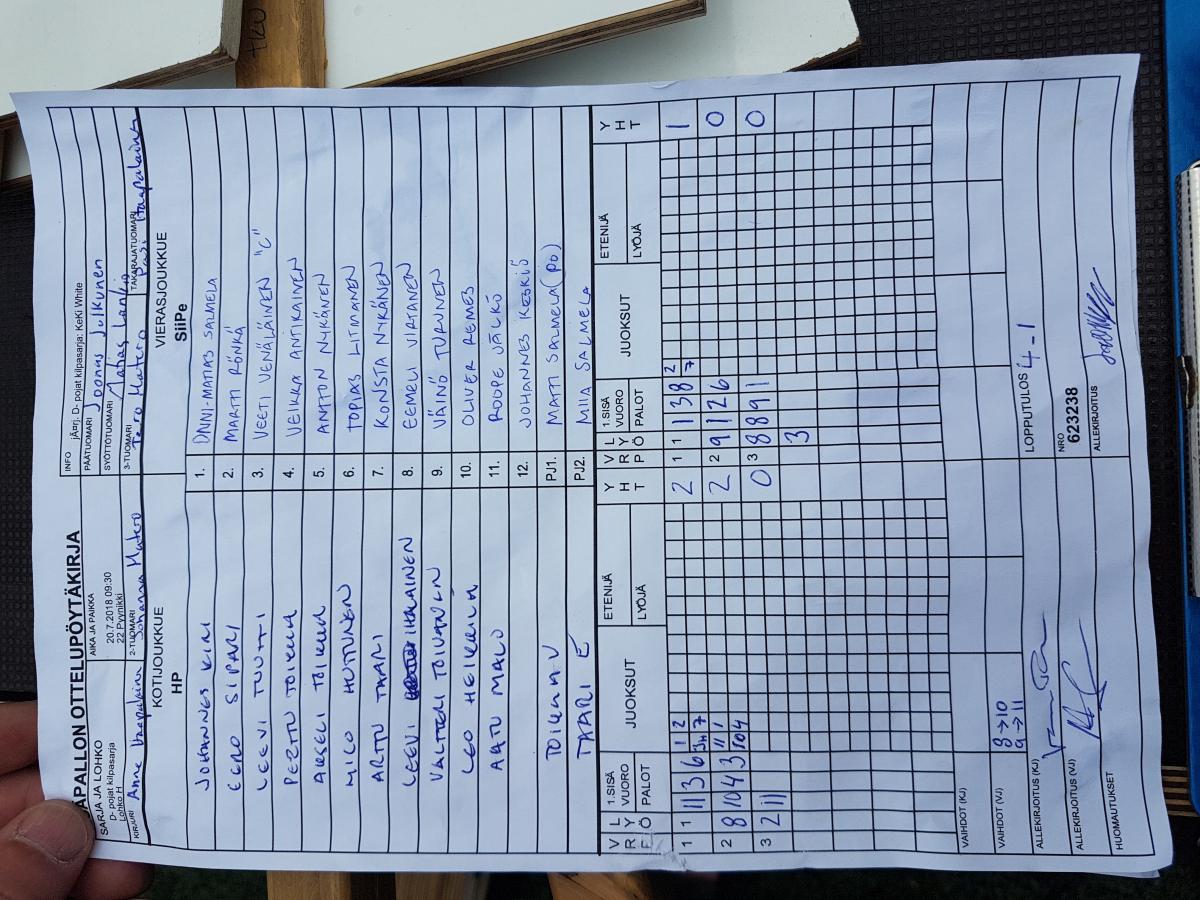 APALLON OTTELUPÖYTÄKIRJA
SARJA JA LOHKO
D- pojat kilpasarja
Lohko H
AIKA JA PAIKKA
20.7.2018 09:30
22 Pyynikki
INFO jÄrrj. D- pojat kilpasarja: KeKi White
PÄÄTUOMARI Joonas Julkunen
SYÖTTÖTUOMARI
KIRJURI Anne Haapalainen
2-TUOMARI Johanna Matero
3-TUOMARI Tero Matero
TAKARAJATUOMARI Pasi Haapalainen
KOTIJOUKKUE
HP
VIERASJOUKKUE
SiiPe
JOHANNES KINI 1. DANI-MATIAS SALMELA
EERO SIPARI 2. MARTTI RÖNKÄ
LEEVI TUUTTI 3. VEETI VENÄLÄINEN "C"
PERTTU TOIKKA 4. VEIKKA ANTIKAINEN
AKSELI TOIKKA 5. ANTTON NYKÄNEN
MILO HUTUNEN 6. TOPIAS LITMANEN
ARTTU TAARI 7. KONSTA NYKÄNEN
LEEVI IHALAINEN 8. EEMELI VIRTANEN
VALTTERI TOIVANEN 9. VÄINÖ TURUNEN
LEO HEIKKILÄ 10. OLIVER REMES
AATU MALO 11. ROOPE JÄLKÖ
12. JOHANNES KESKIÖ
TOIKKA V PJ1. MATTI SALMELA (PO)
TAARI E PJ2. MIIA SALMELA
V R P L Y Ö 1.SISÄ VUORO PALOT JUOKSUT ETENIJÄ LYÖJÄ Y H T
V R P L Y Ö 1.SISÄ VUORO PALOT JUOKSUT ETENIJÄ LYÖJÄ Y H T
1 1 11 3 6 1 2 2 1 1 1 3 8 2 7 1
2 8 10 4 3 2 2 9 1 2 6 0
3 2 11 0 3 8 8 9 1 0
3
VAIHDOT (KJ)
VAIHDOT (VJ) 8→10
9→11
LOPPUTULOS 4-1
ALLEKIRJOITUS (KJ)
NRO
623238
ALLEKIRJOITUS (VJ)
ALLEKIRJOITUS
HUOMAUTUKSET